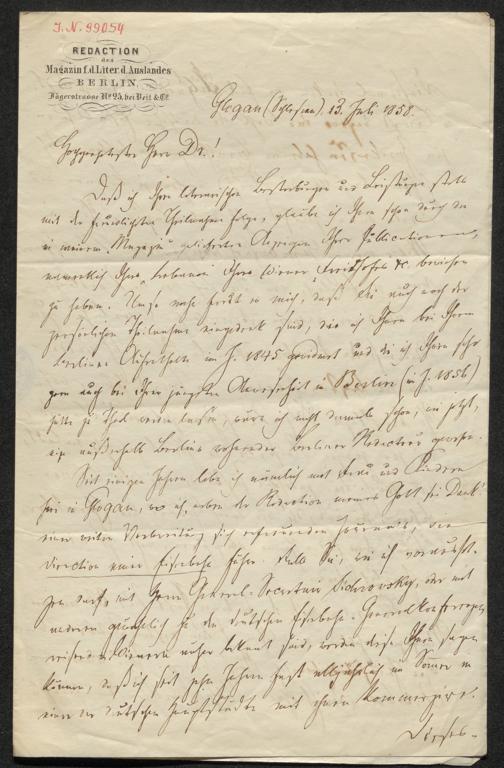 I. N. 99054
REDACTION
des
Magazin f. d. Liter. d. Auslandes
BERLIN,
Jägerstrasse No 25, bei Veit & Co
Glogau (Schlesien), 13. Juli 1858.
Hochgeehrter Herr Dr.!
Daß ich Ihren literarischen Bestrebungen und Leistungen stets
mit der freundlichsten Theilnahme folge, glaube ich Ihnen schon durch die
in meinem „Magazin" gelieferten Anzeigen Ihrer Publicationen,
namentlich Ihrer Ihres Wiener Friedhofes &c. bewiesen
zu haben. Umso mehr freut es mich, daß Sie auch noch der
persönlichen Theilnahme eingedenk sind, die ich Ihnen bei Ihrem
Berliner Aufenthalte im J. 1845 gewidmet und die ich Ihnen sehr
gern auch bei Ihrer jüngsten Anwesenheit in Berlin (im J. 1856)
hätte zu Theil werden lassen, wäre ich nicht damals schon, wie jetzt,
ein außerhalb Berlins wohnender Berliner Redacteur gewesen.
Seit einigen Jahren lebe ich nämlich mit Frau und Kindern
hier in Glogau, wo ich, neben der Redaction meines Gott sei Dank!
einer weiten Verbreitung sich erfreuenden Journals, die
Direction einer Eisenbahn führe. Falls Sie, wie ich voraussetzen
darf, mit Herrn General-Secretair oder mit
anderen zu den deutschen Eisenbahn-Generalkonferenzen
reisenden Wienern näher bekannt sind, werden diese Ihnen sagen
können, daß ich seit zehn Jahren fast alljährlich im Sommer in
einer der deutschen Hauptstädte mit ihnen
Dieses